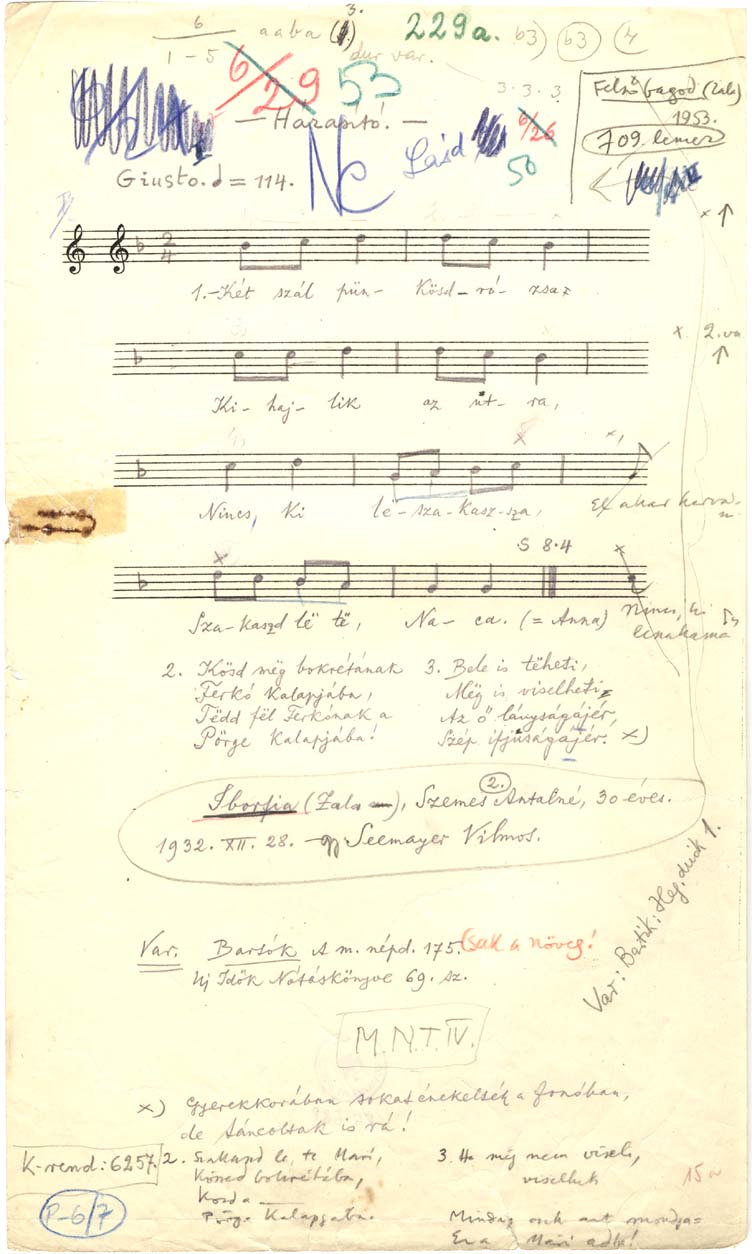 6 3.
1-5 aaba
229a. b3) b3) 4
dur var.
6/29 53
3·3·3
Felsőbagod (Zala)
1953.
709. lemez
— Házasító. —
Nc Lásd 6/26
50
Giusto. = 114.
2/4
1.-Két szál pün- kösd-ró- zsa
x. 2. va
Ki- haj- lik az út- ra,
Nincs, ki lë- sza-kasz-sza,
S 8·4
Sza-kaszd lë të, Na- ca. (= Anna)
Nincs, ki
2. Kösd még bokrétának
Ferkó kalapjába,
Tëdd fël Ferkónak a
Pörge kalapjába!
3. Bele is tëheti,
Még is viselheti,
Az ő lányságájér,
Szép ifjuságájér. x)
2.
Iborfia (Zala), Szemes Antalné, 30 éves.
1932. XII. 28. Seemayer Vilmos.
Var: Bartók: Heg. duók 1.
Var. Bartók A m. népd. 175. Csak a növeg!
Uj Idők Nótáskönyve 69. sz.
M.N.T. IV.
x) Gyerekkorában sokat énekelték a fonóban,
de táncoltak is rá!
K-rend: 6257.
2. Szakaszd le, te Mari,
bokrétába,
Pörge kalapjába.
3. Ha még nem viseli,
15
Mindig csak azt mondja=
Mári adta!
P-6/7